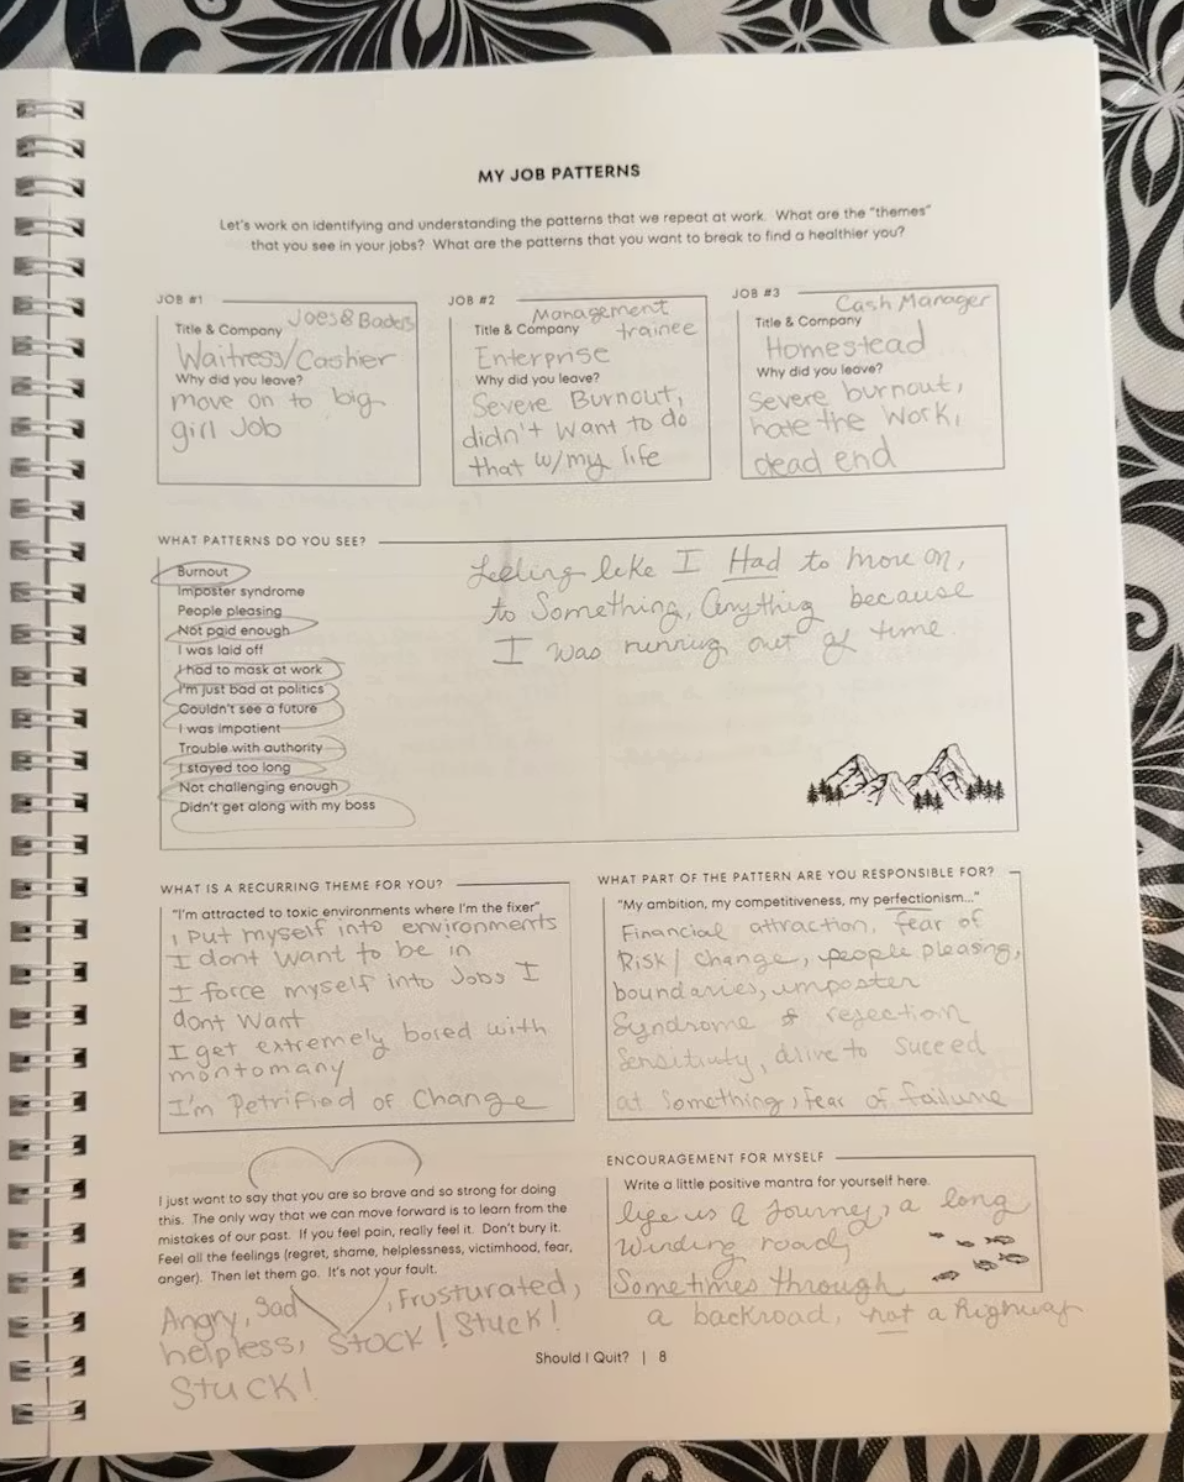 MY JOB PATTERNS
Let's work on identifying and understanding the patterns that we repeat at work. What are the "themes"
that you see in your jobs? What are the patterns that you want to break to find a healthier you?
JOB #1
Title & Company Joes &
Waitress/Cashier
Why did you leave?
move on to big
girl Job
JOB #2
Management
Title & Company trainee
Enterprise
Why did you leave?
Severe Burnout,
didn't want to do
that w/my life
JOB #3
Cash Manager
Title & Company
Homestead
Why did you leave?
Severe burnout,
hate the work,
dead end
WHAT PATTERNS DO YOU SEE?
Burnout
Imposter syndrome
People pleasing
Not paid enough
I was laid off
I had to mask at work
I'm just bad at politics
Couldn't see a future
I was impatient
Trouble with authority
I stayed too long
Not challenging enough
Didn't get along with my boss
feeling like I Had to move on,
to Something, anything because
I was running out of time
WHAT IS A RECURRING THEME FOR YOU?
"I'm attracted to toxic environments where I'm the fixer"
I put myself into environments
I dont want to be in
I force myself into Jobs I
dont want
I get extremely bored with
montomany
I'm Petrified of Change
WHAT PART OF THE PATTERN ARE YOU RESPONSIBLE FOR?
"My ambition, my competitiveness, my perfectionism..."
Financial attraction, fear of
Risk/change, people pleasing,
boundaries, imposter
Syndrome & rejection
Sensitivity, drive to suceed
at something, fear of failure
I just want to say that you are so brave and so strong for doing
this. The only way that we can move forward is to learn from the
mistakes of our past. If you feel pain, really feel it. Don't bury it.
Feel all the feelings (regret, shame, helplessness, victimhood, fear,
anger). Then let them go. It's not your fault.
Angry, Sad, Frusturated,
helpless, Stuck! Stuck!
Stuck!
ENCOURAGEMENT FOR MYSELF
Write a little positive mantra for yourself here.
life is a Journey, a long
Winding road,
Sometimes through
a backroad, not a highway
Should I Quit? | 8